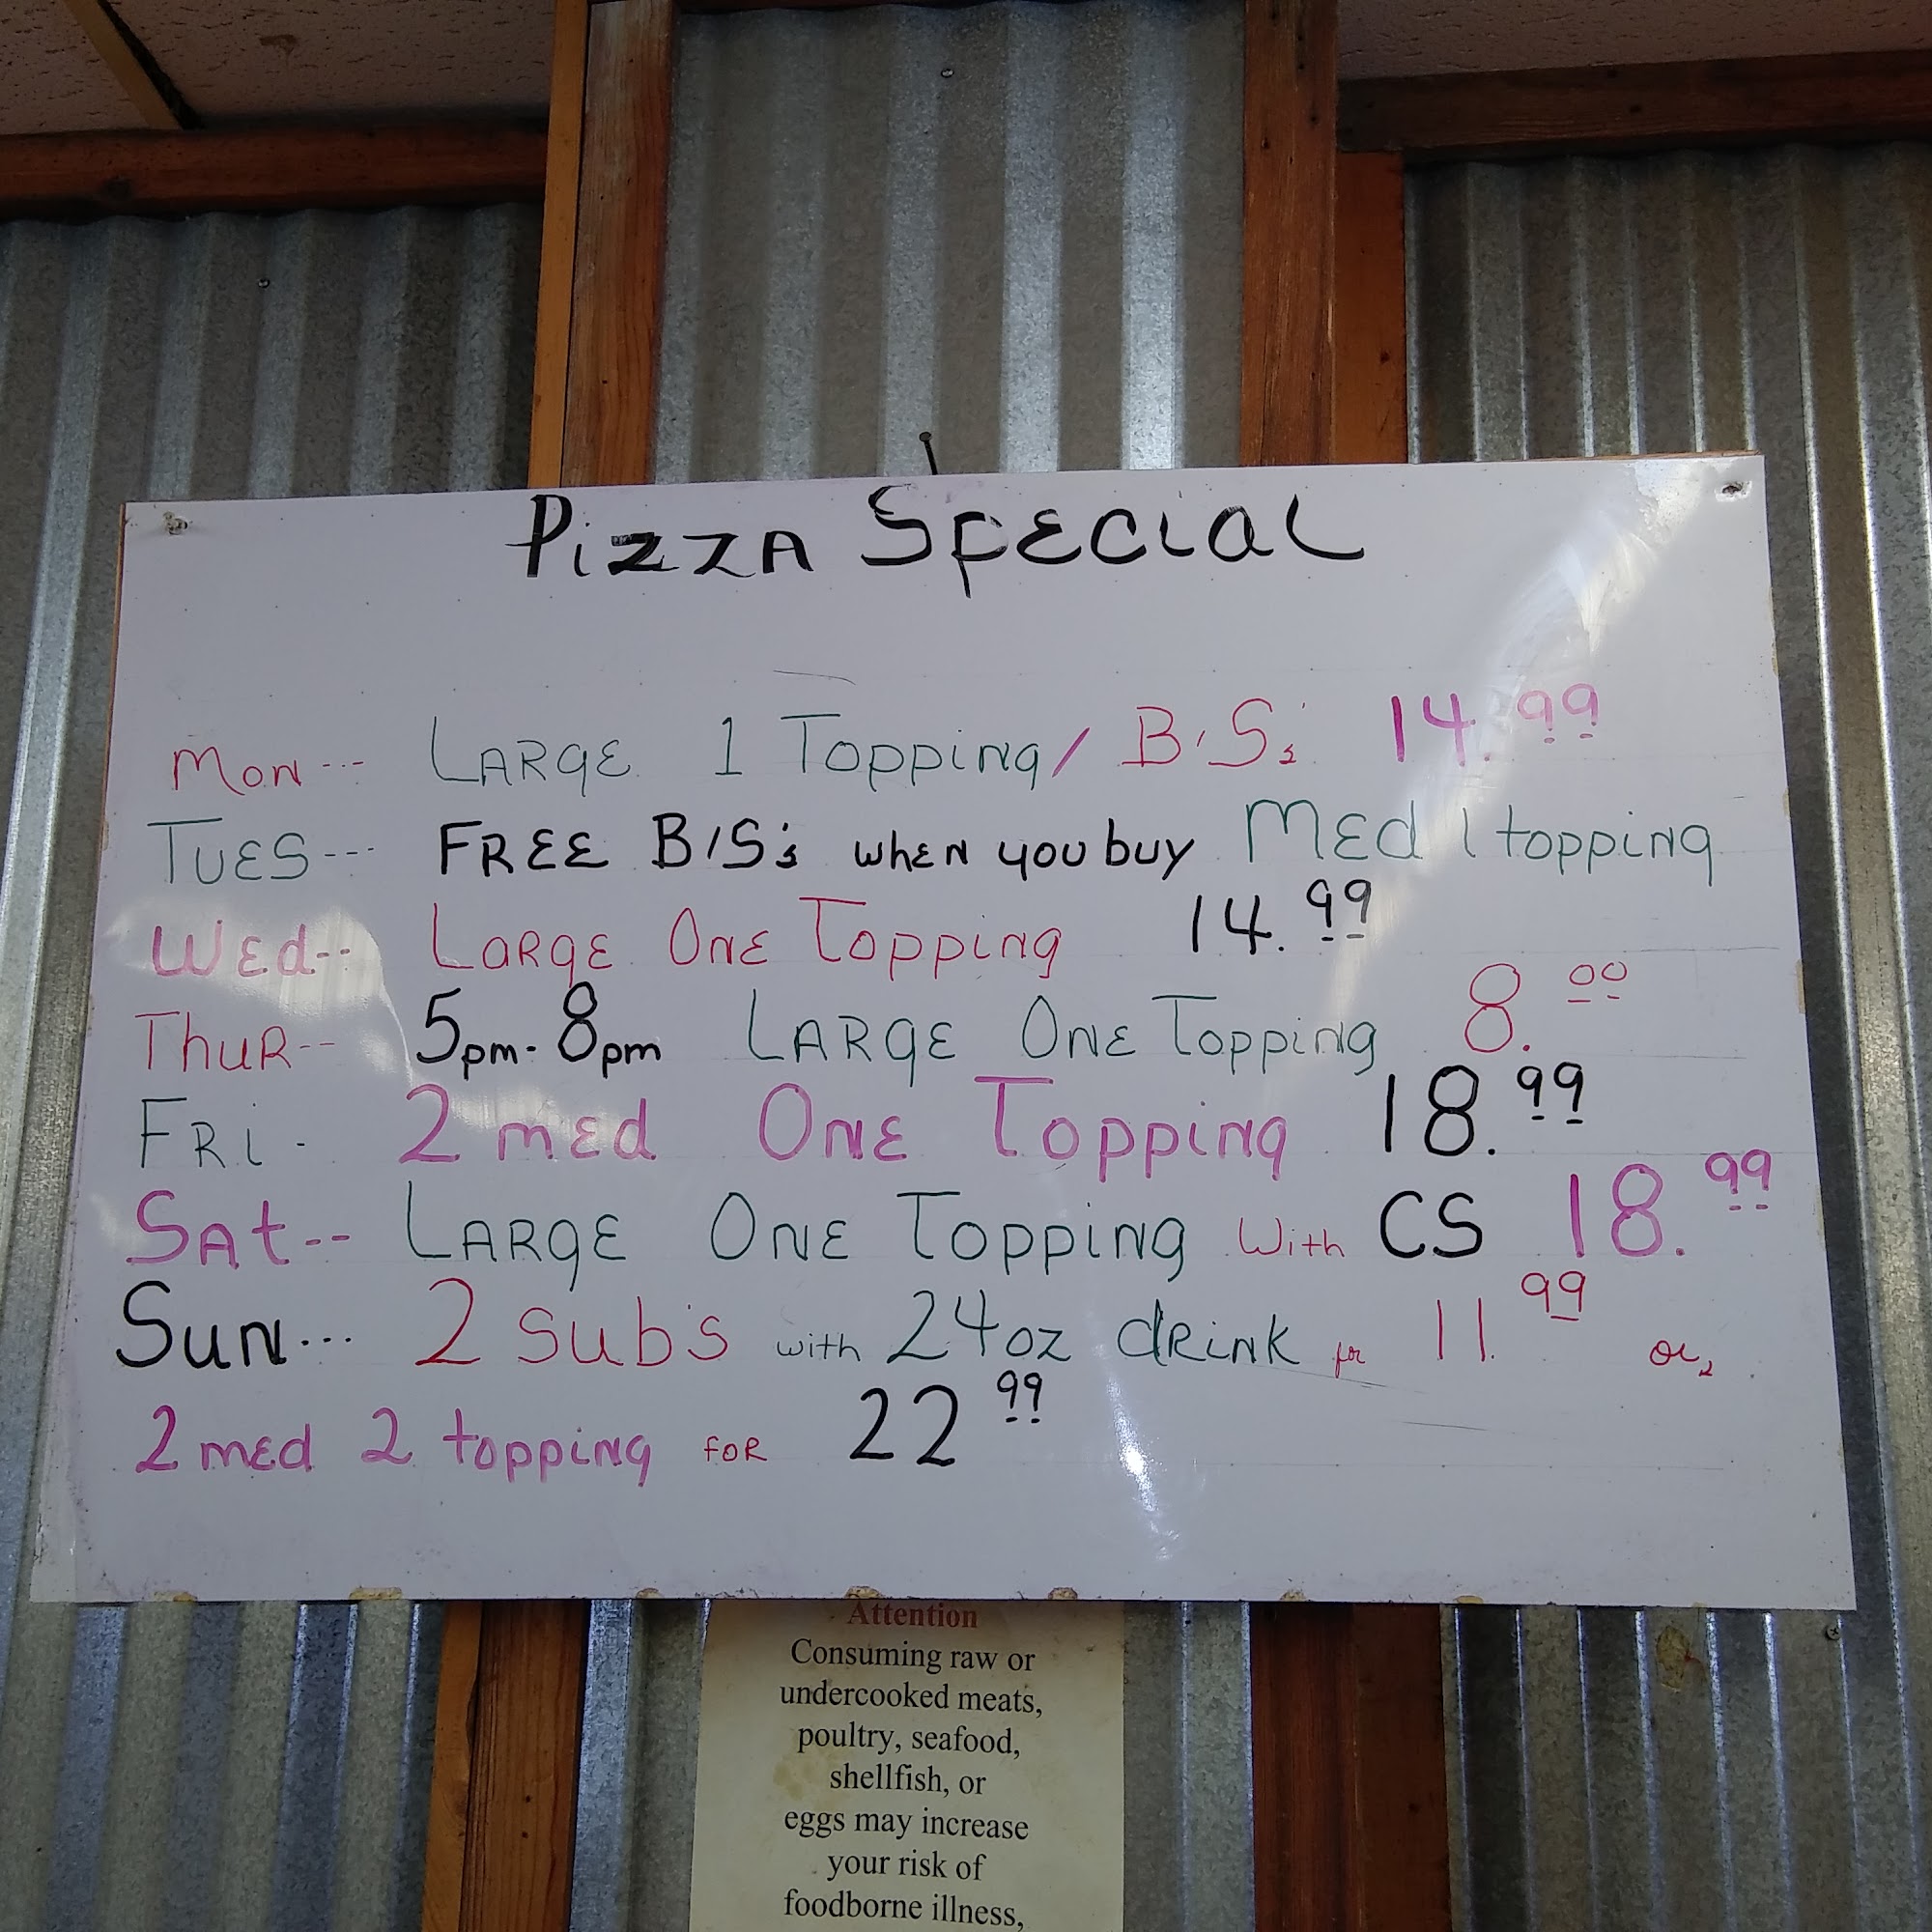 Pizza Special
Mon --- Large 1 Topping / B/S's 14.99
Tues --- Free B/S's when you buy Med 1 topping
Wed -- Large One Topping 14.99
Thur -- 5pm - 8pm Large One Topping 8.00
Fri - 2 med One Topping 18.99
Sat -- Large One Topping With CS 18.99
Sun ... 2 subs with 24oz drink for 11.99 or,
2 med 2 topping for 22 99
Attention
Consuming raw or
undercooked meats,
poultry, seafood,
shellfish, or
eggs may increase
your risk of
foodborne illness,